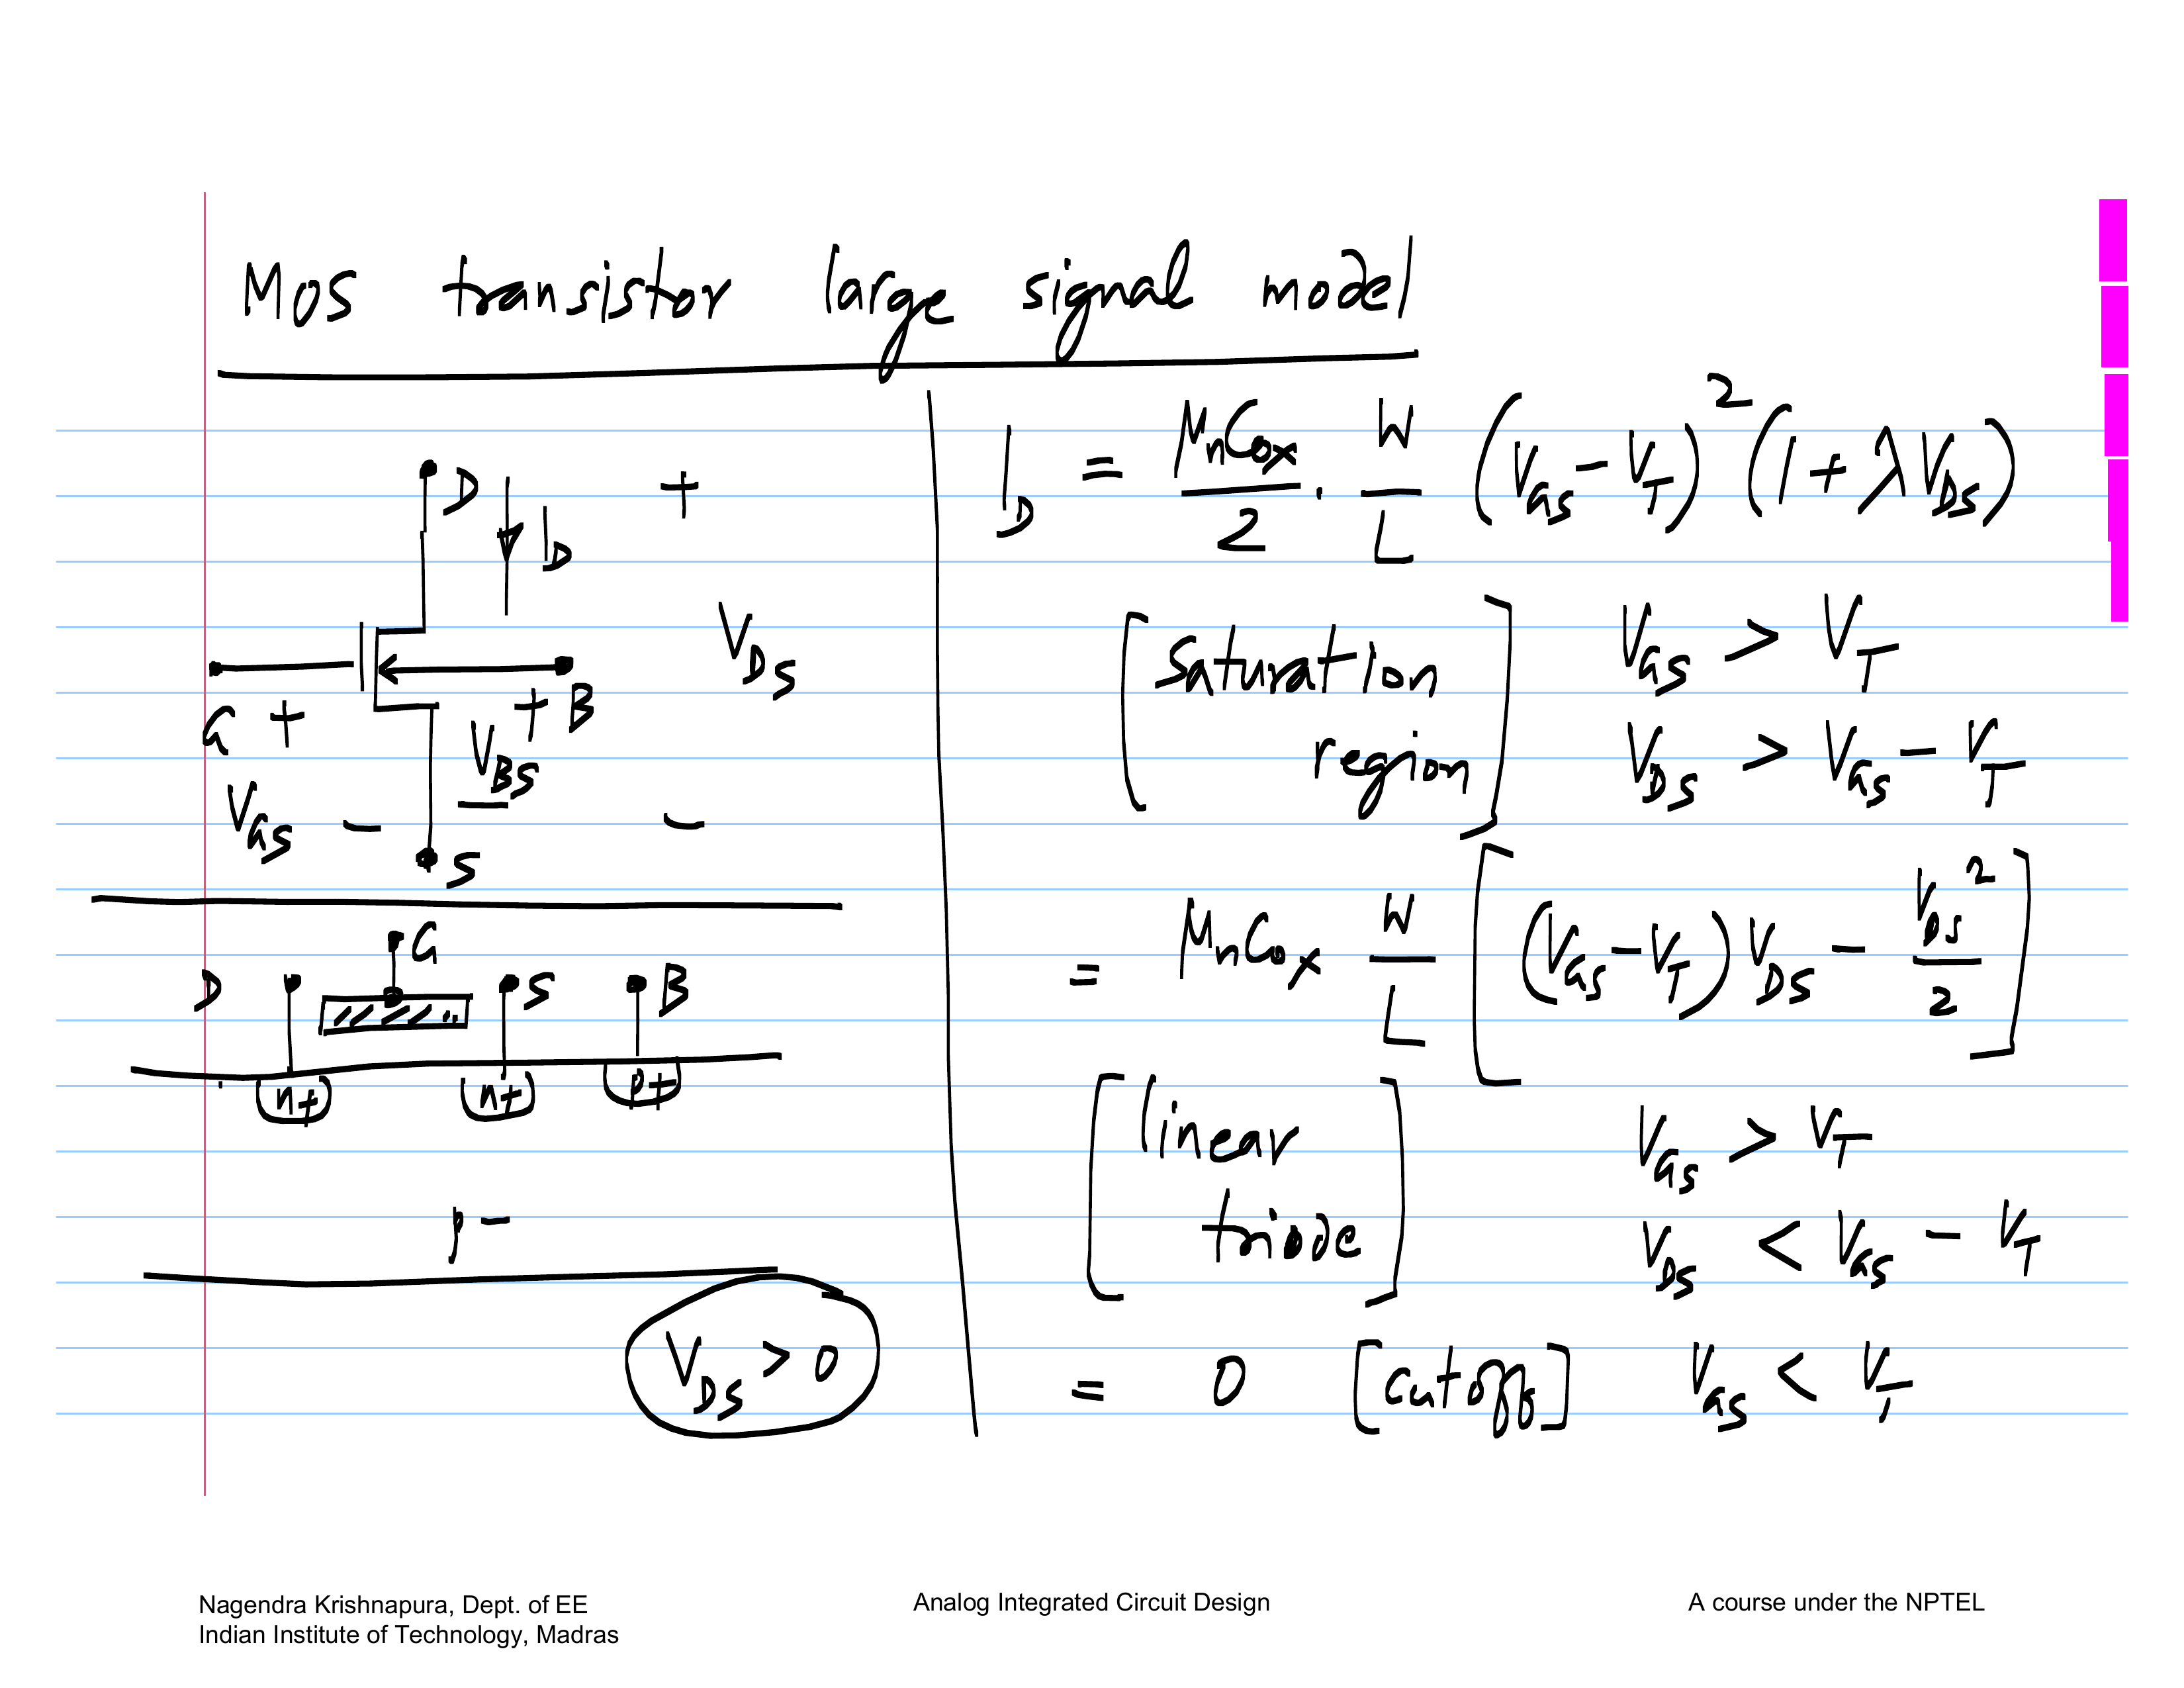 MOS transistor large signal model
D
I_D
+
V_DS
G +
+ B
V_BS
V_GS −
−
S
G
D
S
B
n+
n+
p+
p−
V_DS > 0
I_D = μ_nC_ox/2 · W/L (V_GS − V_T)² (1 + λV_DS)
[Saturation region]
V_GS > V_T
V_DS > V_GS − V_T
= μ_nC_ox W/L [(V_GS − V_T) V_DS − V_DS²/2]
[linear triode]
V_GS > V_T
V_DS < V_GS − V_T
= 0 [cutoff] V_GS < V_T
Nagendra Krishnapura, Dept. of EE
Indian Institute of Technology, Madras
Analog Integrated Circuit Design
A course under the NPTEL